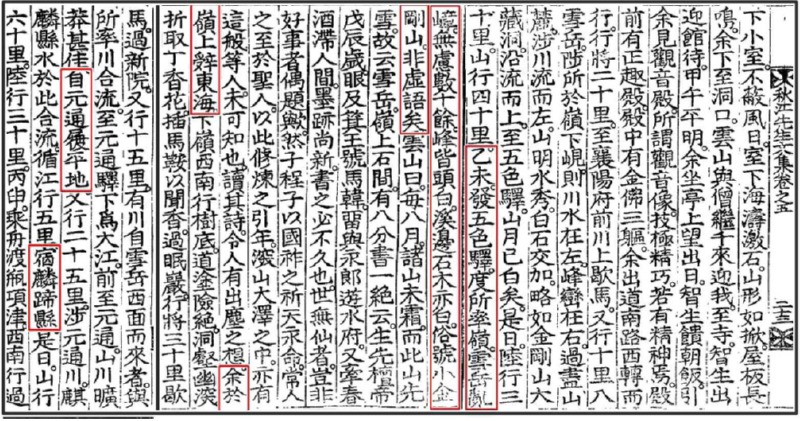 秋江先生文集卷之五
下小室不蔽風日室下海濤激石山形如掀屋板長
鳴余下至洞口雲山與僧繼千來迎我至寺智生出
迎館待甲午平明余坐亭上望出日智生饋朝飯引
余見觀音殿所謂觀音像技極精巧若有精神焉殿
前有正趣殿殿中有金佛三軀余出道南路西轉而
行行將二十里至襄陽府前川上歇馬又行十里八
雪岳陟所於嶺下峴則川水在左峰巒在右過盡山
麓涉川流而左山明水秀白石交加略如金剛山六
藏洞沿流而上至五色驛山月已白矣是日陸行三
十里山行四十里乙未發五色驛度所率嶺雪岳亂
嶂無慮數十餘峰皆頭白溪邊石木亦白俗號小金
剛山非虛語矣雲山曰每八月諸山未霜而此山先
雪故云雪岳嶺上石間有八分書一絶云生先檀帝
戊辰歲眼及箕王號馬韓留與永郎遊水府又牽春
酒滯人間墨跡尚新書之必不久也世無仙者豈非
好事者偶題歟然子程子以國祚之祈天永命常人
之至於聖人以此修煉之引年深山大澤之中亦有
這般等人未可知也讀其詩令人有出塵之想余於
嶺上辭東海下嶺西南行樹底道塗險絶洞壑幽深
折取丁香花揷馬鞍以聞香過眠巖行將三十里歇
馬過新院又行十五里有川自雪岳西面而來者與
所率川合流至元通驛下爲大江前至元通山川曠
莽甚佳自元通履平地又行二十五里涉元通川麒
麟縣水於此合流循江行五里宿麟蹄縣是日山行
六十里陸行三十里丙申乘舟渡甁項津西南行過